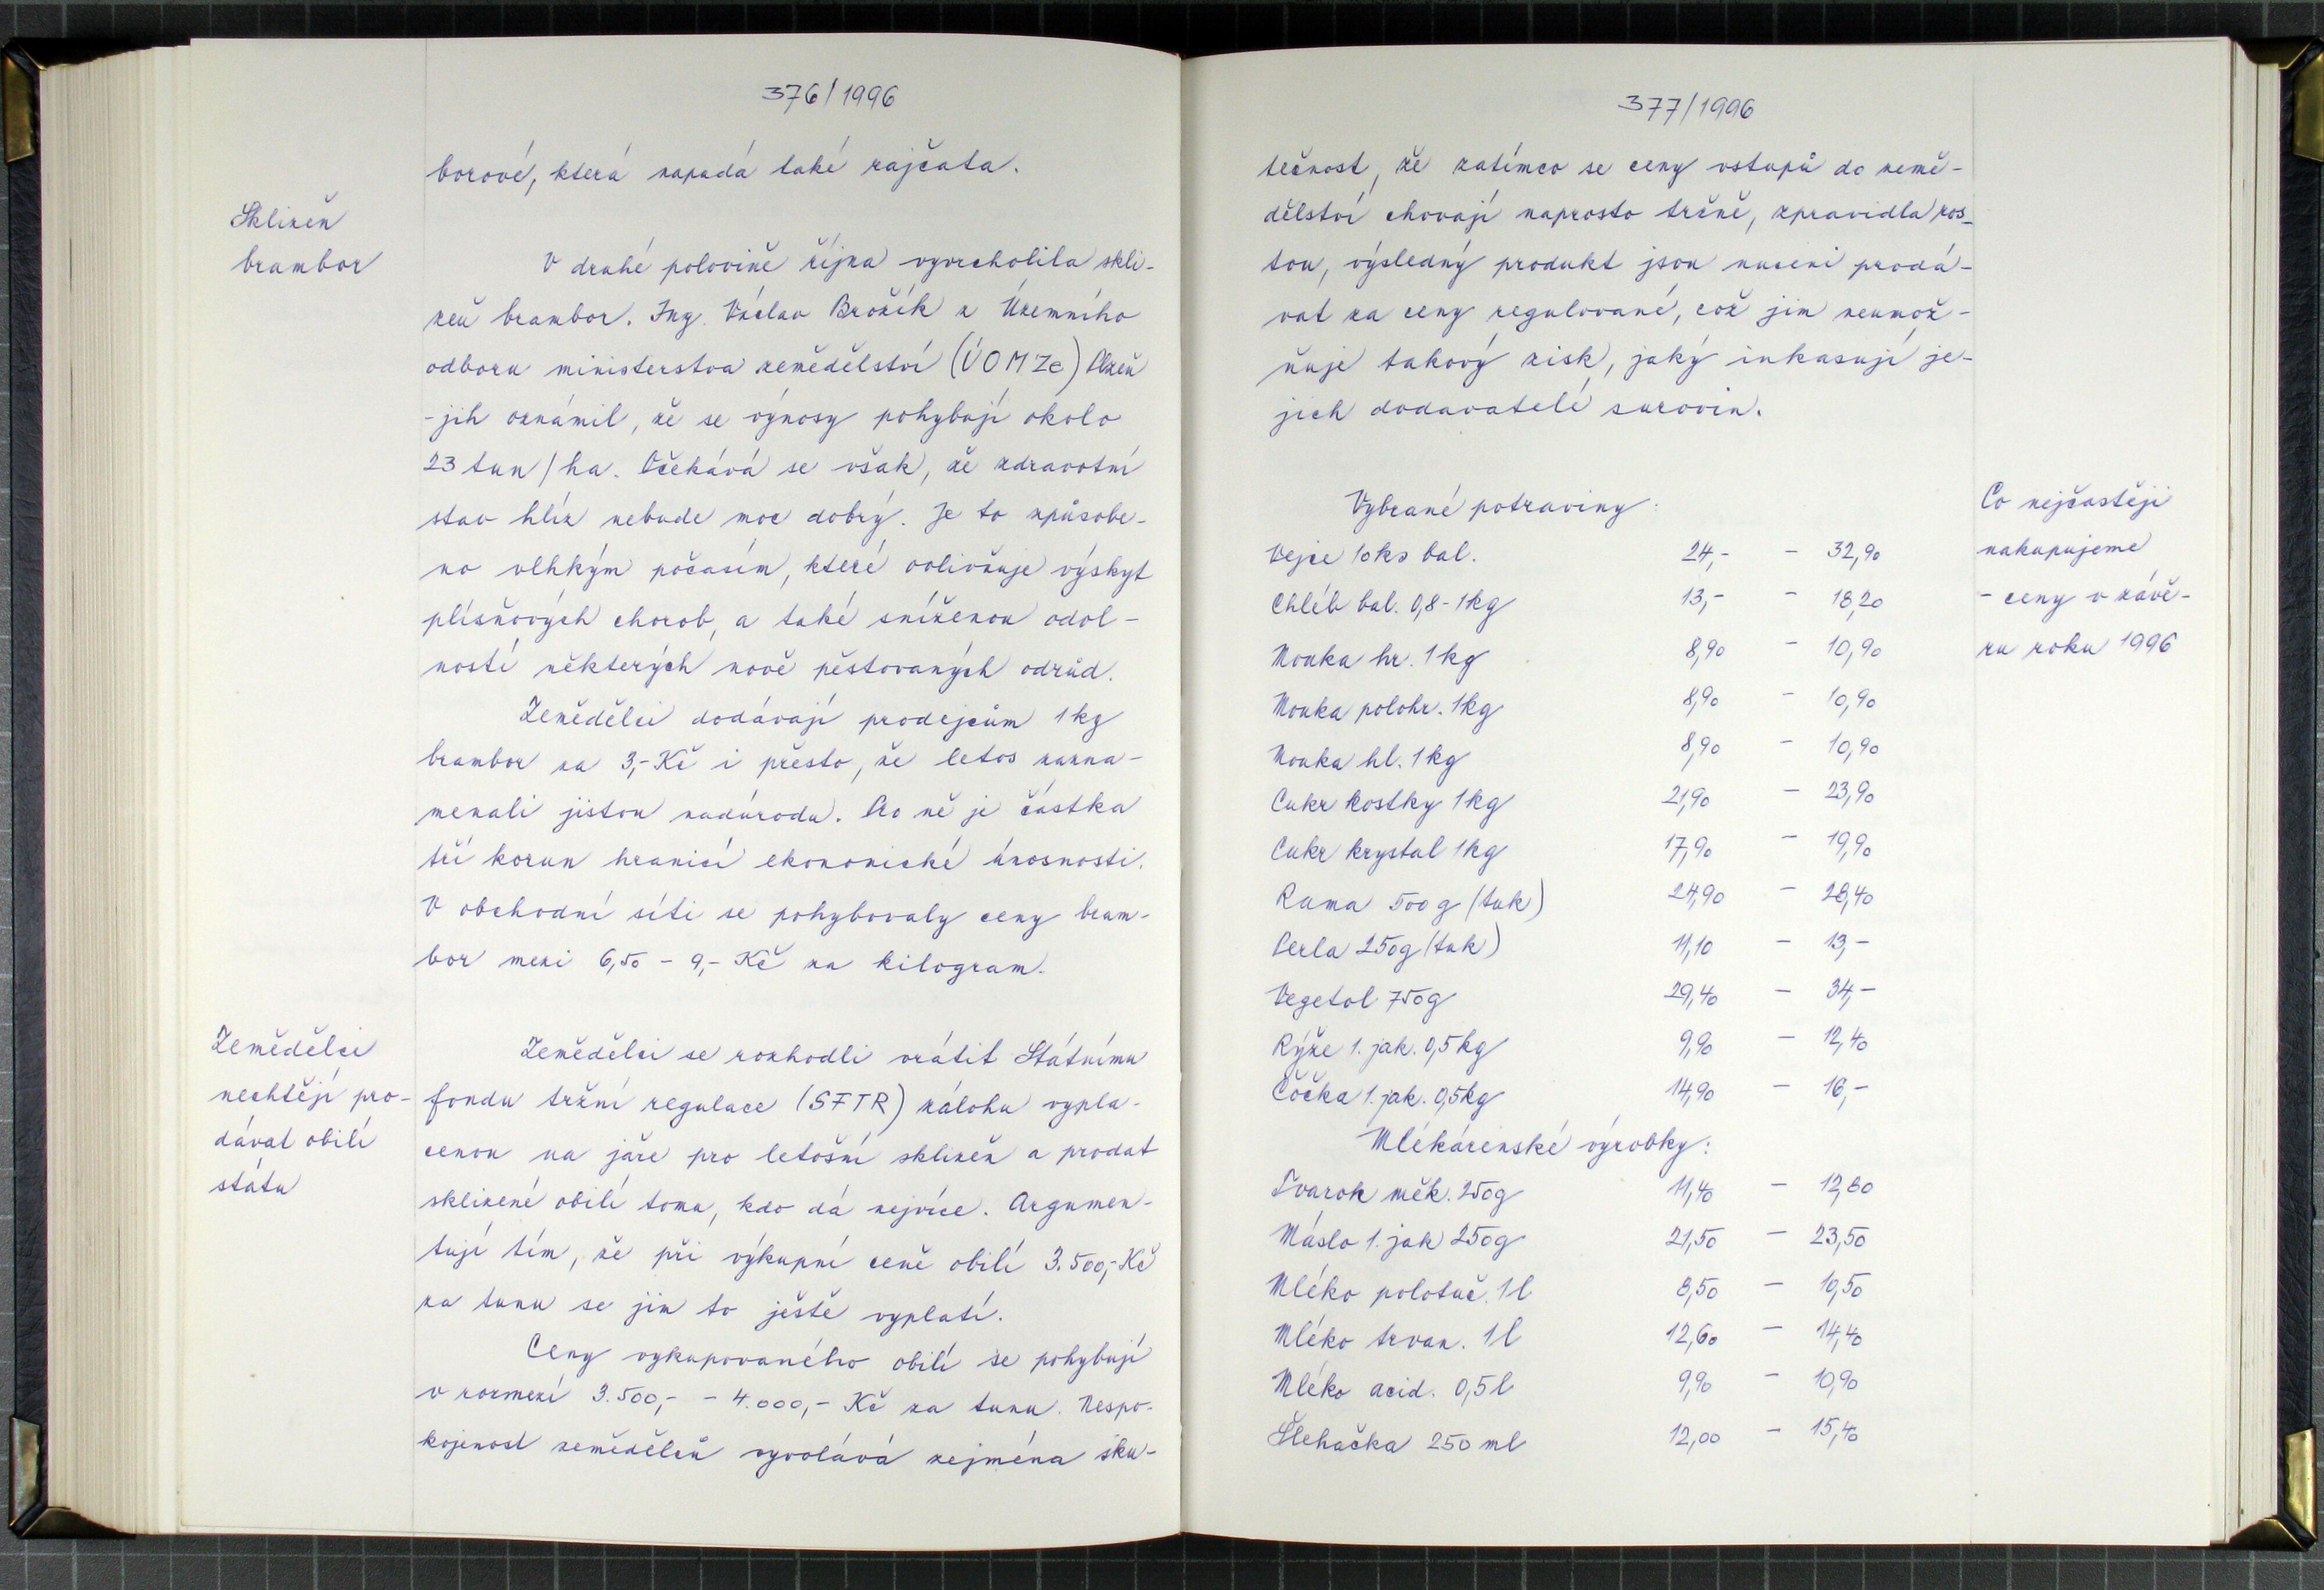 376/1996
borové, která napadá také rajčata.
Sklizeň
brambor
V druhé polovině října vyvrcholila skli-
zeň brambor. Ing. Václav Brožík z Územního
odboru ministerstva zemědělství (ÚOMZe) Plzeň
-jih oznámil, že se výnosy pohybují okolo
23 tun/ha. Očekává se však, že zdravotní
stav hlíz nebude moc dobrý. Je to způsobe-
no vlhkým počasím, které ovlivňuje výskyt
plísňových chorob, a také sníženou odol-
ností některých nově pěstovaných odrůd.
Zemědělci dodávají prodejcům 1 kg
brambor za 3,- Kč i přesto, že letos zazna-
menali jistou nadúrodu. Pro ně je částka
tří korun hranicí ekonomické únosnosti.
V obchodní síti se pohybovaly ceny bram-
bor mezi 6,50 - 9,- Kč za kilogram.
Zemědělci
nechtějí pro-
dávat obilí
státu
Zemědělci se rozhodli vrátit Státnímu
fondu tržní regulace (SFTR) zálohu vypla-
cenou na jaře pro letošní sklizeň a prodat
sklizené obilí tomu, kdo dá nejvíce. Argumen-
tují tím, že při výkupní ceně obilí 3.500,- Kč
za tunu se jim to ještě vyplatí.
Ceny vykupovaného obilí se pohybují
v rozmezí 3.500,- - 4.000,- Kč za tunu. Nespo-
kojenost zemědělců vyvolává zejména sku-
377/1996
tečnost, že zatímco se ceny vstupů do země-
dělství chovají naprosto tržně, zpravidla ros-
tou, výsledný produkt jsou nuceni prodá-
vat za ceny regulované, což jim neumož-
ňuje takový zisk, jaký inkasují je-
jich dodavatelé surovin.
Co nejčastěji
nakupujeme
- ceny v závě-
ru roku 1996
Vybrané potraviny:
Vejce 10 ks bal. 24,- - 32,90
Chléb bal. 0,8-1kg 13,- - 18,20
Mouka hr. 1kg 8,90 - 10,90
Mouka polohr. 1kg 8,90 - 10,90
Mouka hl. 1kg 8,90 - 10,90
Cukr kostky 1kg 21,90 - 23,90
Cukr krystal 1kg 17,90 - 19,90
Rama 500g (tuk) 24,90 - 28,40
Perla 250g (tuk) 11,10 - 13,-
Vegetol 750g 29,40 - 34,-
Rýže 1. jak. 0,5kg 9,90 - 12,40
Čočka 1. jak. 0,5kg 14,90 - 16,-
Mlékárenské výrobky:
Tvaroh měk. 250g 11,40 - 12,80
Máslo 1. jak 250g 21,50 - 23,50
Mléko polotuč. 1l 8,50 - 10,50
Mléko trvan. 1l 12,60 - 14,40
Mléko acid. 0,5l 9,90 - 10,90
Šlehačka 250 ml 12,00 - 15,40